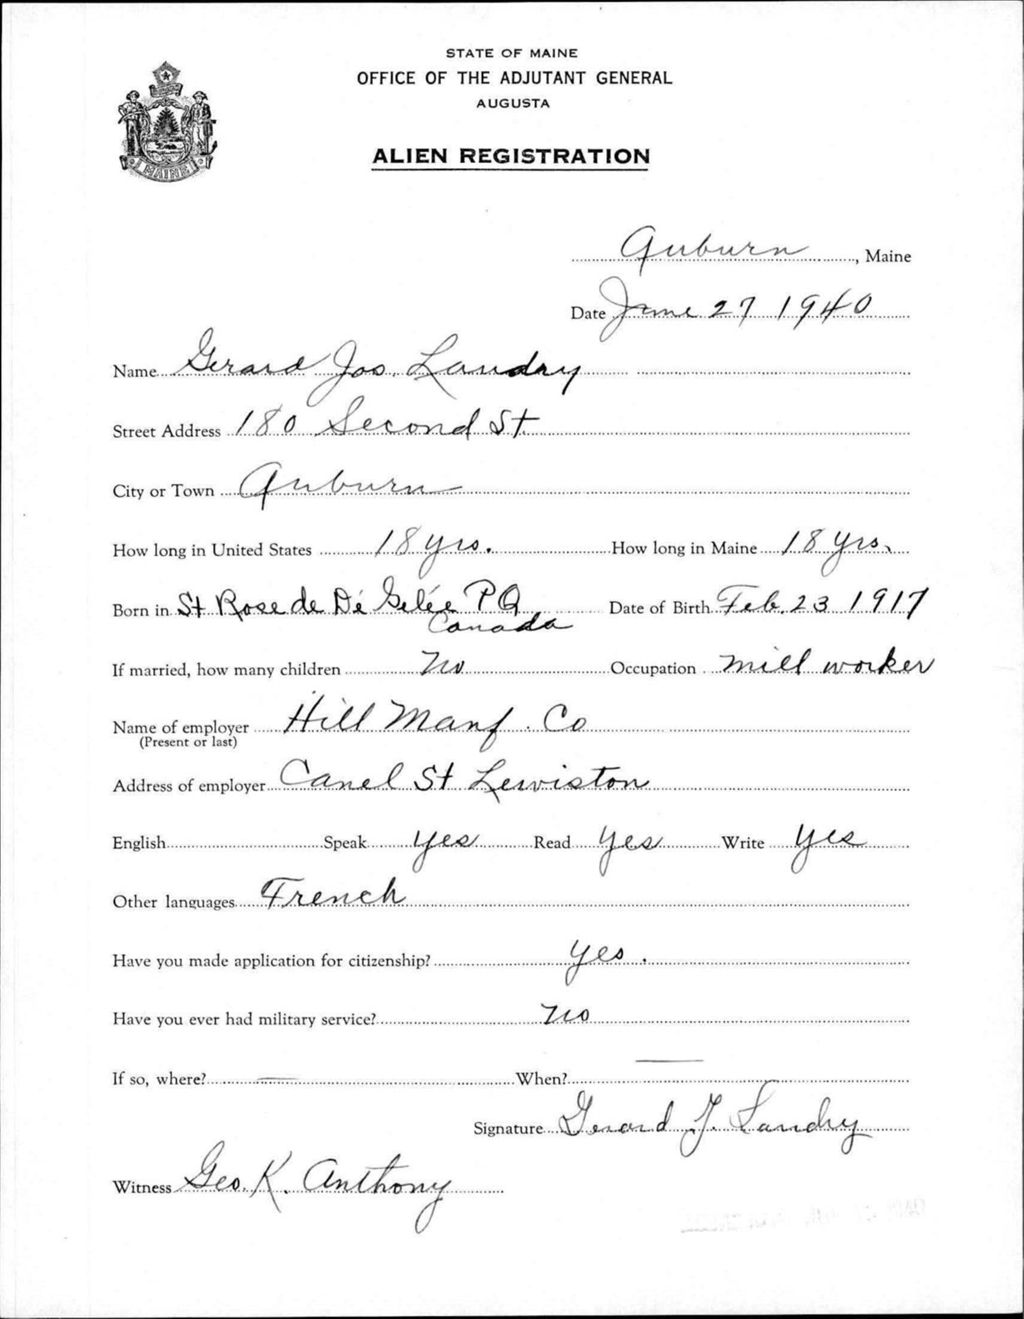 STATE OF MAINE
OFFICE OF THE ADJUTANT GENERAL
AUGUSTA
ALIEN REGISTRATION
MAINE
Auburn, Maine
Date June 27 1940
Name Gerard Jos. Landry
Street Address 180 Second St
City or Town Auburn
How long in United States 18 yrs. How long in Maine 18 yrs.
Born in St Rose de Dé Gelée P Q Date of Birth Feb. 23 1917
Canada
If married, how many children No Occupation Mill worker
Name of employer Hill Manf. Co
(Present or last)
Address of employer Canel St Lewiston
English Speak yes Read yes Write yes
Other languages French
Have you made application for citizenship? yes.
Have you ever had military service? No
If so, where? — When? —
Signature Gerard J. Landry
Witness Geo. K. Anthony